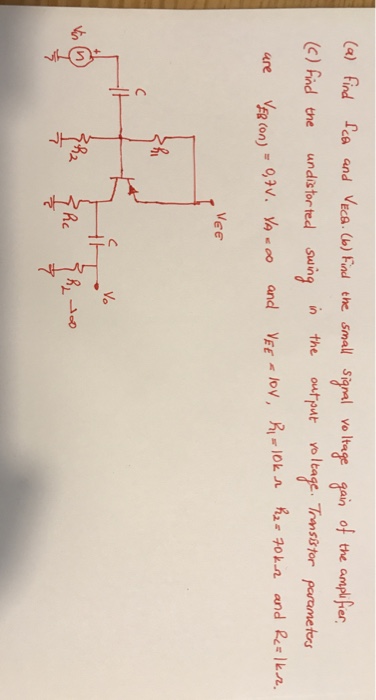 (a) Find ICQ and VECQ. (b) Find the small signal voltage gain of the amplifier.
(c) Find the undistorted swing in the output voltage. Transistor parameters
are VEB(on) = 0,7V. VA = ∞ and VEE = 10V, R1 = 10kΩ R2 = 70kΩ and Rc = 1kΩ.
VEE
R1
C
C
Vo
Vin
+
R2
Rc
RL → ∞